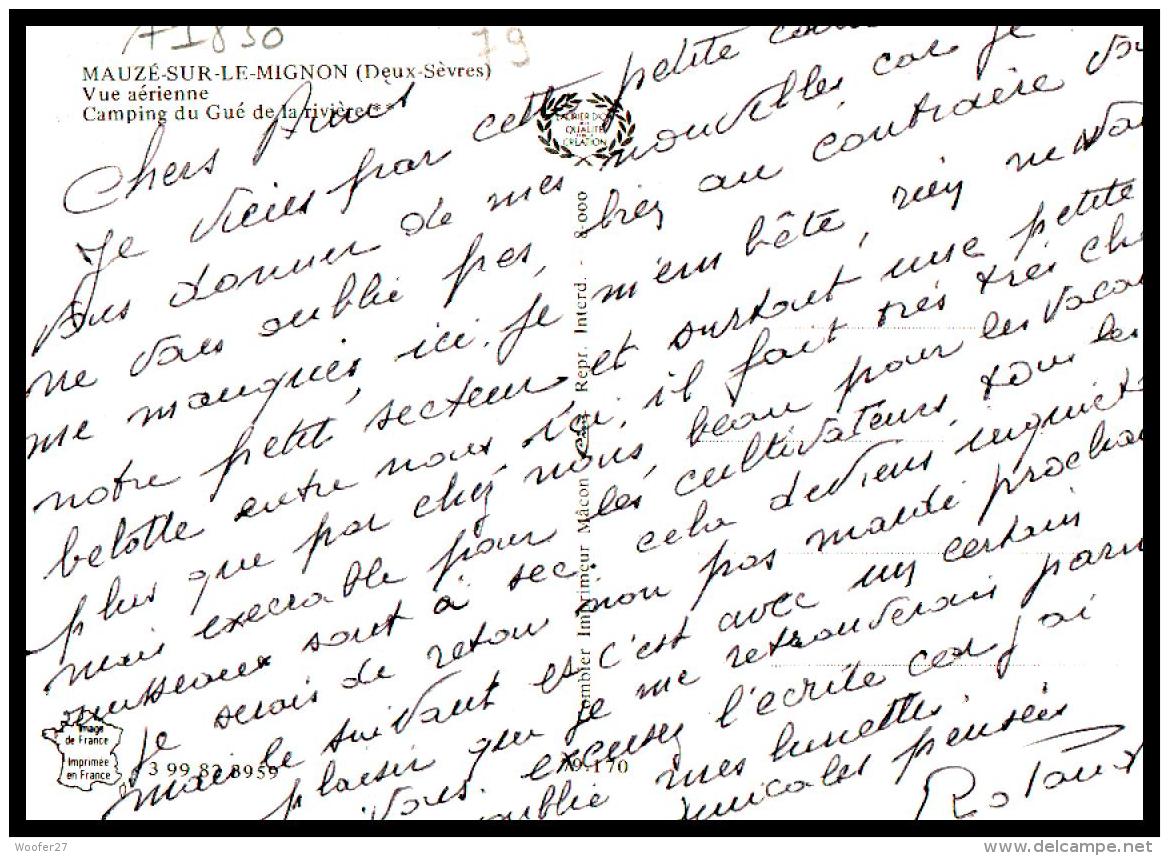 A1830
79
MAUZÉ-SUR-LE-MIGNON (Deux-Sèvres)
Vue aérienne
Camping du Gué de la rivière**
LAURIER D'OR
QUALITÉ
CRÉATION
Chers Amis
Je viens par cette petite
vous donner de mes nouvelles, car je
ne vous oublie pas, bien au contraire vous
me manquiez, ici. Je m'embête, rien ne vau
notre petit secteur et surtout une petite
belotte entre nous. Ici, il fait très très ch
plus que par chez nous, beau pour les vacan
mais execrable pour les cultivateurs, tous les
ruisseaux sont à sec. cela deviens inquiet
Je serais de retour non pas mardi prochai
mais le suivant et c'est avec un certain
plaisir que je me retrouverais parm
vous. excusez l'ecrite car j'ai
oublié mes lunettes
amicales pensées
Roland
Combier Imprimeur Mâcon Repr. Interd. - 8-000
Image
de France
Imprimée
en France
3 99 82 8959
79.170
Woofer27
www.delcampe.net